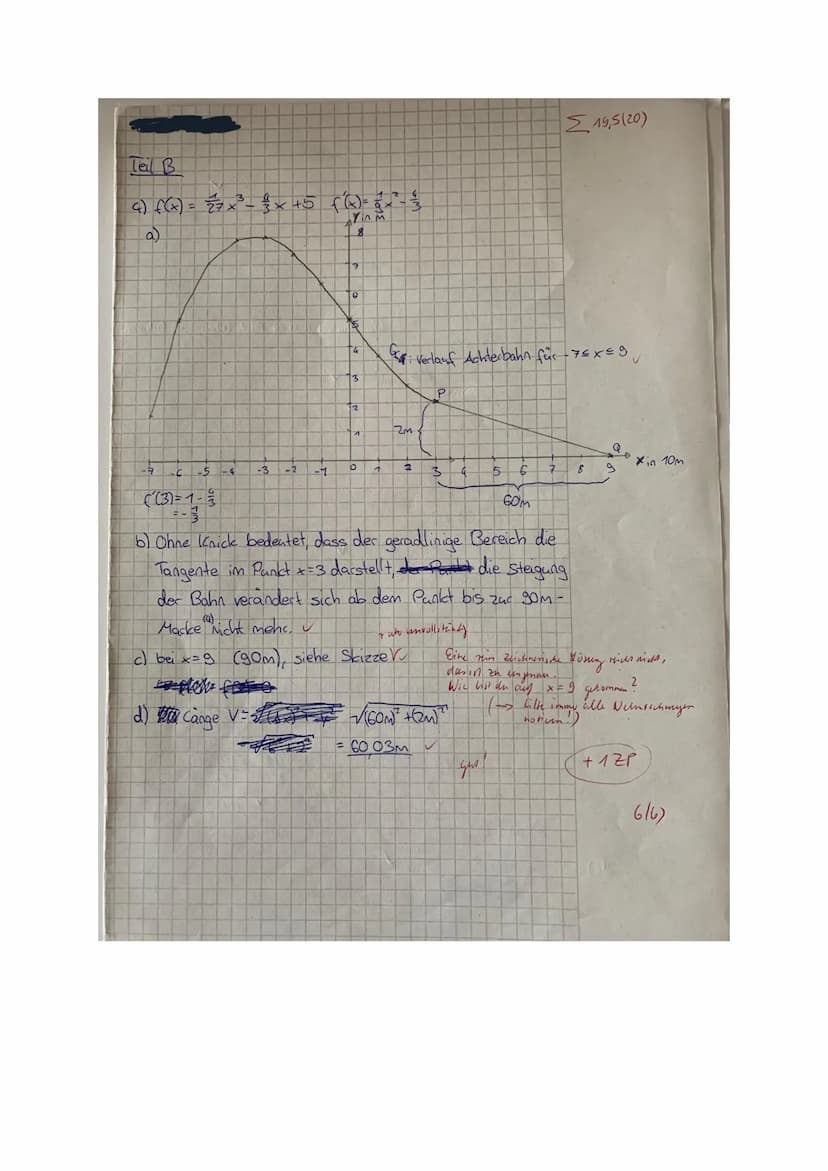 Σ 19,5(20)
Teil B
a) f(x) = 1/27 x³ - 4/3 x + 5 f'(x) = 1/9 x² - 4/3
Y in m
a)
8
7
6
5
4
G_f: Verlauf Achterbahn für -7 ≤ x ≤ 9 ✓
3
P
2
2m
1
Q
-7 -6 -5 -4 -3 -2 -1 0 1 2 3 4 5 6 7 8 9 X in 10m
f'(3) = 1 - 4/3
= - 1/3
60m
b) Ohne Knick bedeutet, dass der geradlinige Bereich die
Tangente im Punkt x=3 darstellt, die Steigung
der Bahn verändert sich ab dem Punkt bis zur 90m-
Marke (Q) nicht mehr. ✓
unvollständig
c) bei x=9 (90m), siehe Skizze ✓
Eine rein zeichnerische Lösung reicht nicht,
das ist zu ungenau.
Wie bist du auf x=9 gekommen?
(→ bitte immer alle Nebenrechnungen
notieren!)
d) Länge V = √((60m)² + (2m)²)
= 60,03m ✓
gut!
+1 ZP
6/6)